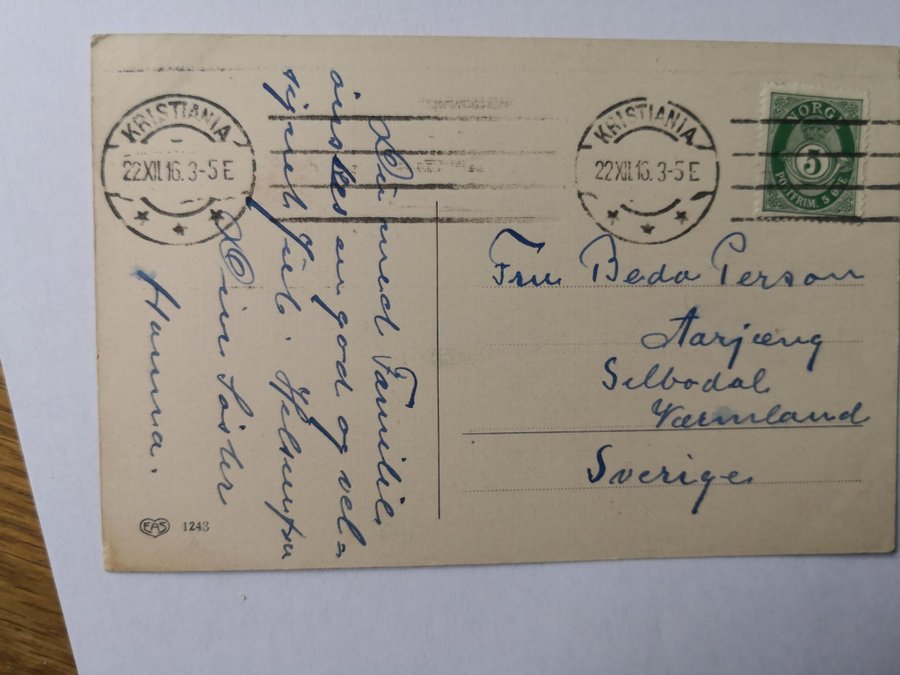 KRISTIANIA
22 XII.16. 3-5 E
KRISTIANIA
22 XII.16. 3-5 E
NORGE
5
POSTFRIM. 5 ØRE
Du med Familie
önskes en god og vel=
signet Jul. Hilsen fra
Din Söster
Hanna.
Fru Beda Person
Aarjæng
Silbodal
Værmland
Sverige
EAS 1243